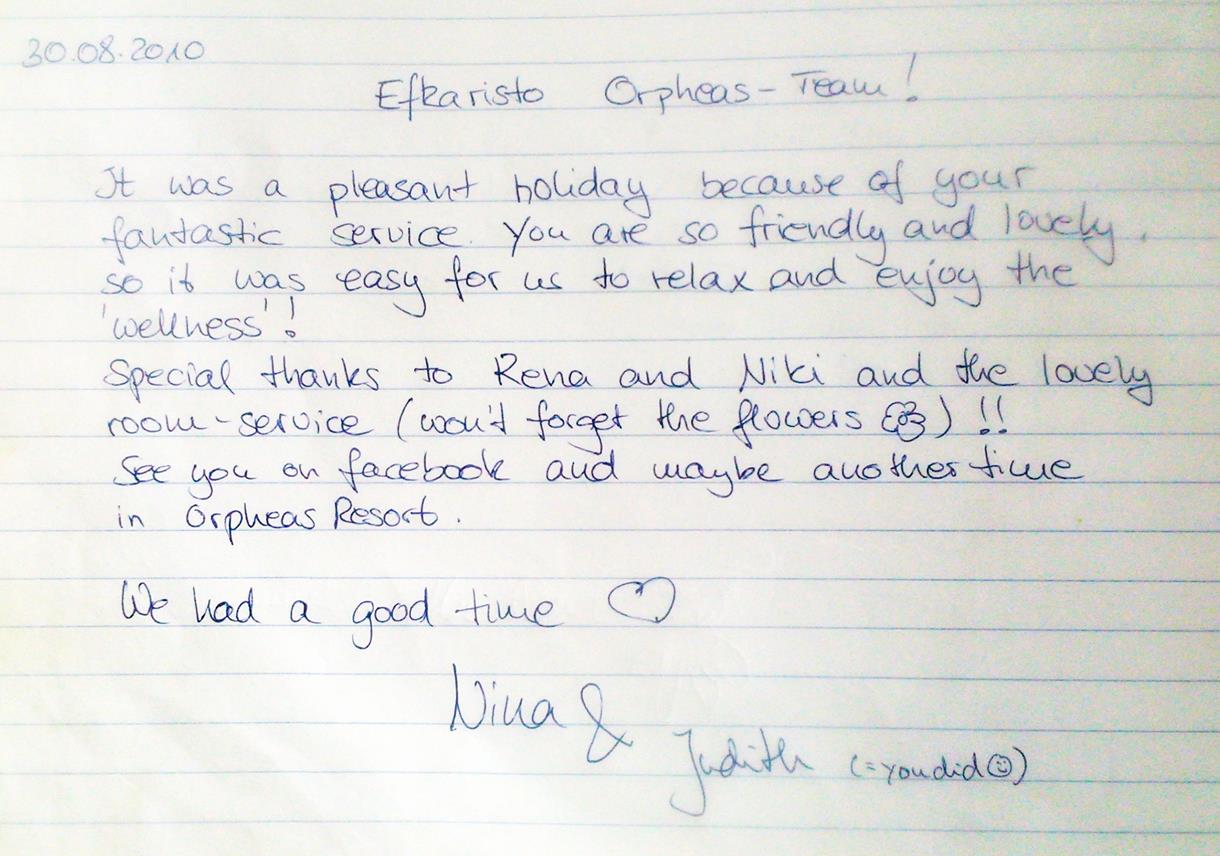 30.08.2010
Efkaristo Orpheas-Team!
It was a pleasant holiday because of your
fantastic service. You are so friendly and lovely,
so it was easy for us to relax and enjoy the
'wellness'!
Special thanks to Rena and Niki and the lovely
room-service (won't forget the flowers) !!
See you on facebook and maybe another time
in Orpheas Resort.
We had a good time ♡
Nina &
Judith (=you did ☺)